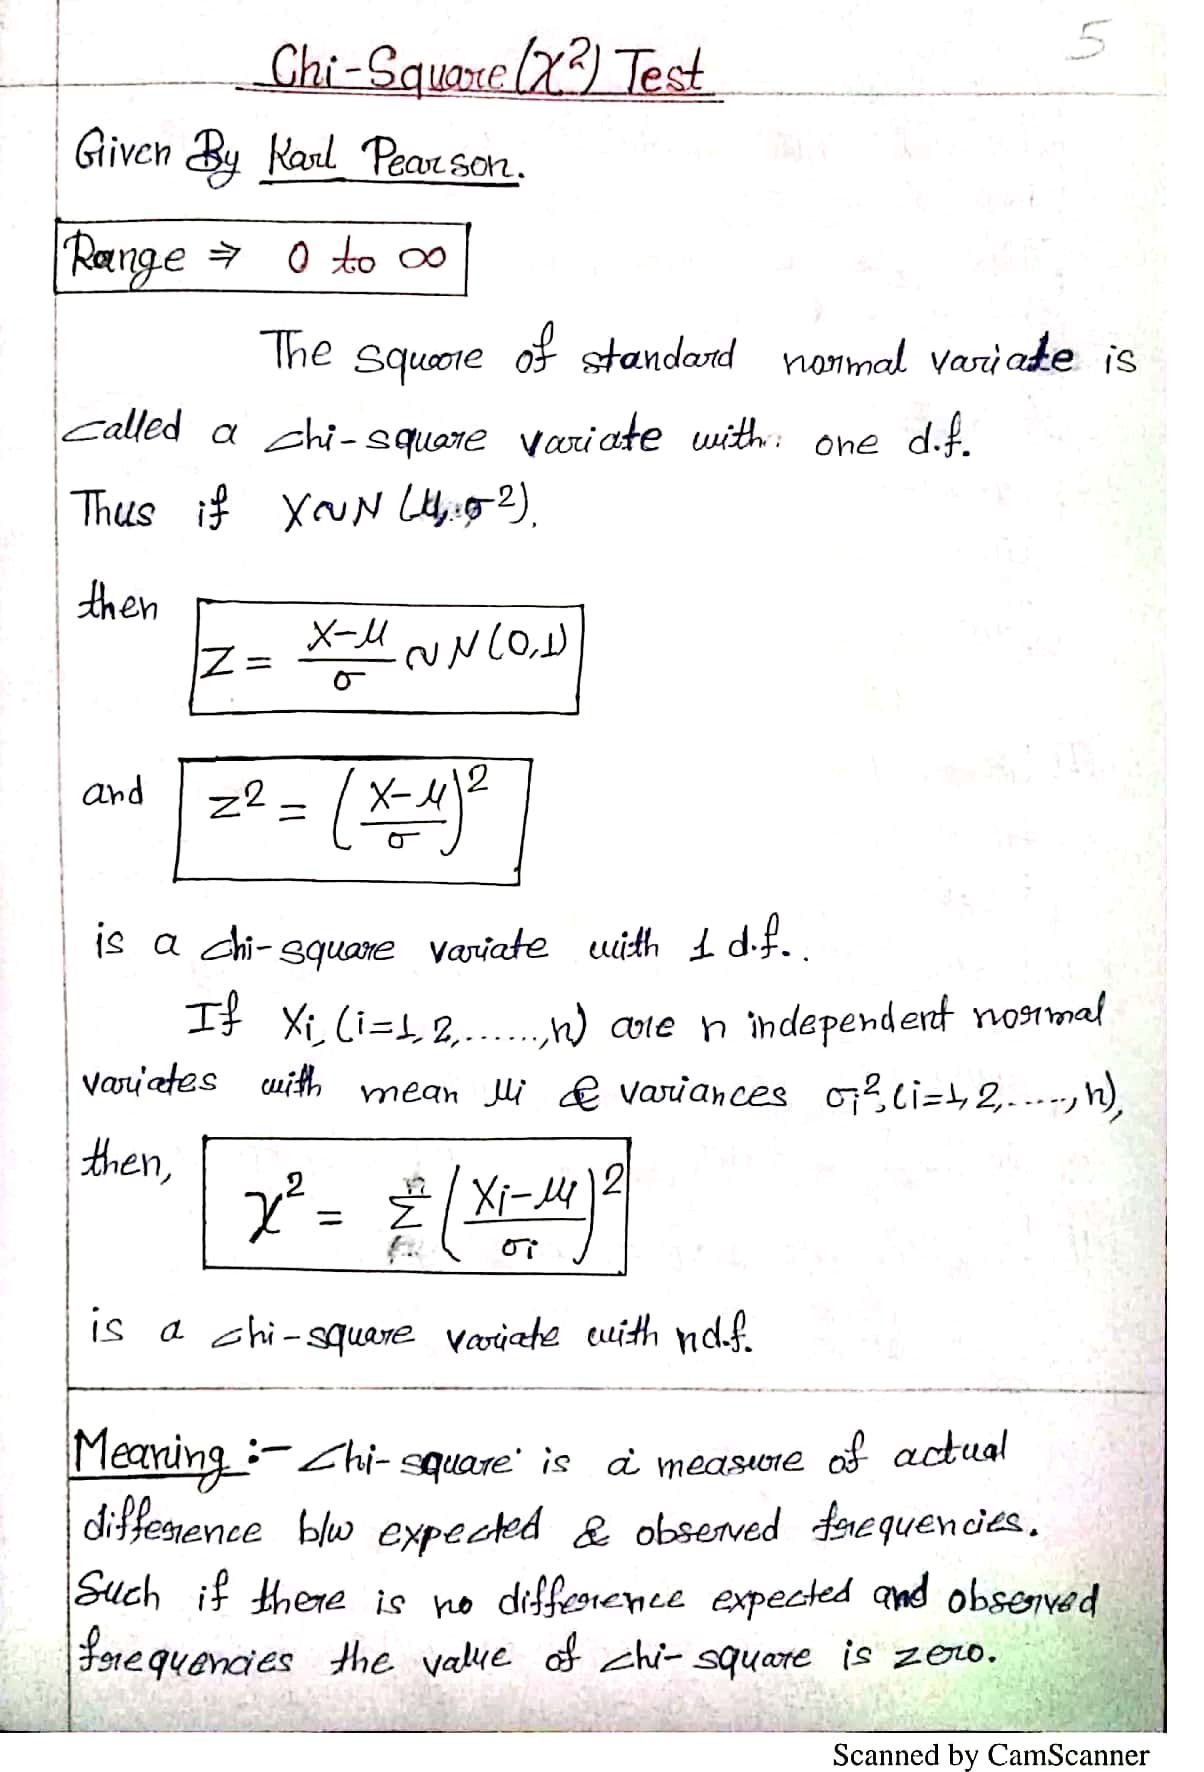 5
Chi-Square (χ²) Test
Given By Karl Pearson.
Range ⇒ 0 to ∞
The square of standard normal variate is
called a chi-square variate with one d.f.
Thus if X~N (μ, σ²),
then Z = (X-μ)/σ ~ N(0,1)
and z² = ((X-μ)/σ)²
is a chi-square variate with 1 d.f..
If Xi, (i=1, 2,......,n) are n independent normal
variates with mean μi & variances σi², (i=1, 2,....., n),
then, χ² = Σ ((Xi-μi)/σi)²
is a chi-square variate with n d.f.
Meaning :- Chi-square is a measure of actual
difference b/w expected & observed frequencies.
Such if there is no difference expected and observed
frequencies the value of chi-square is zero.
Scanned by CamScanner